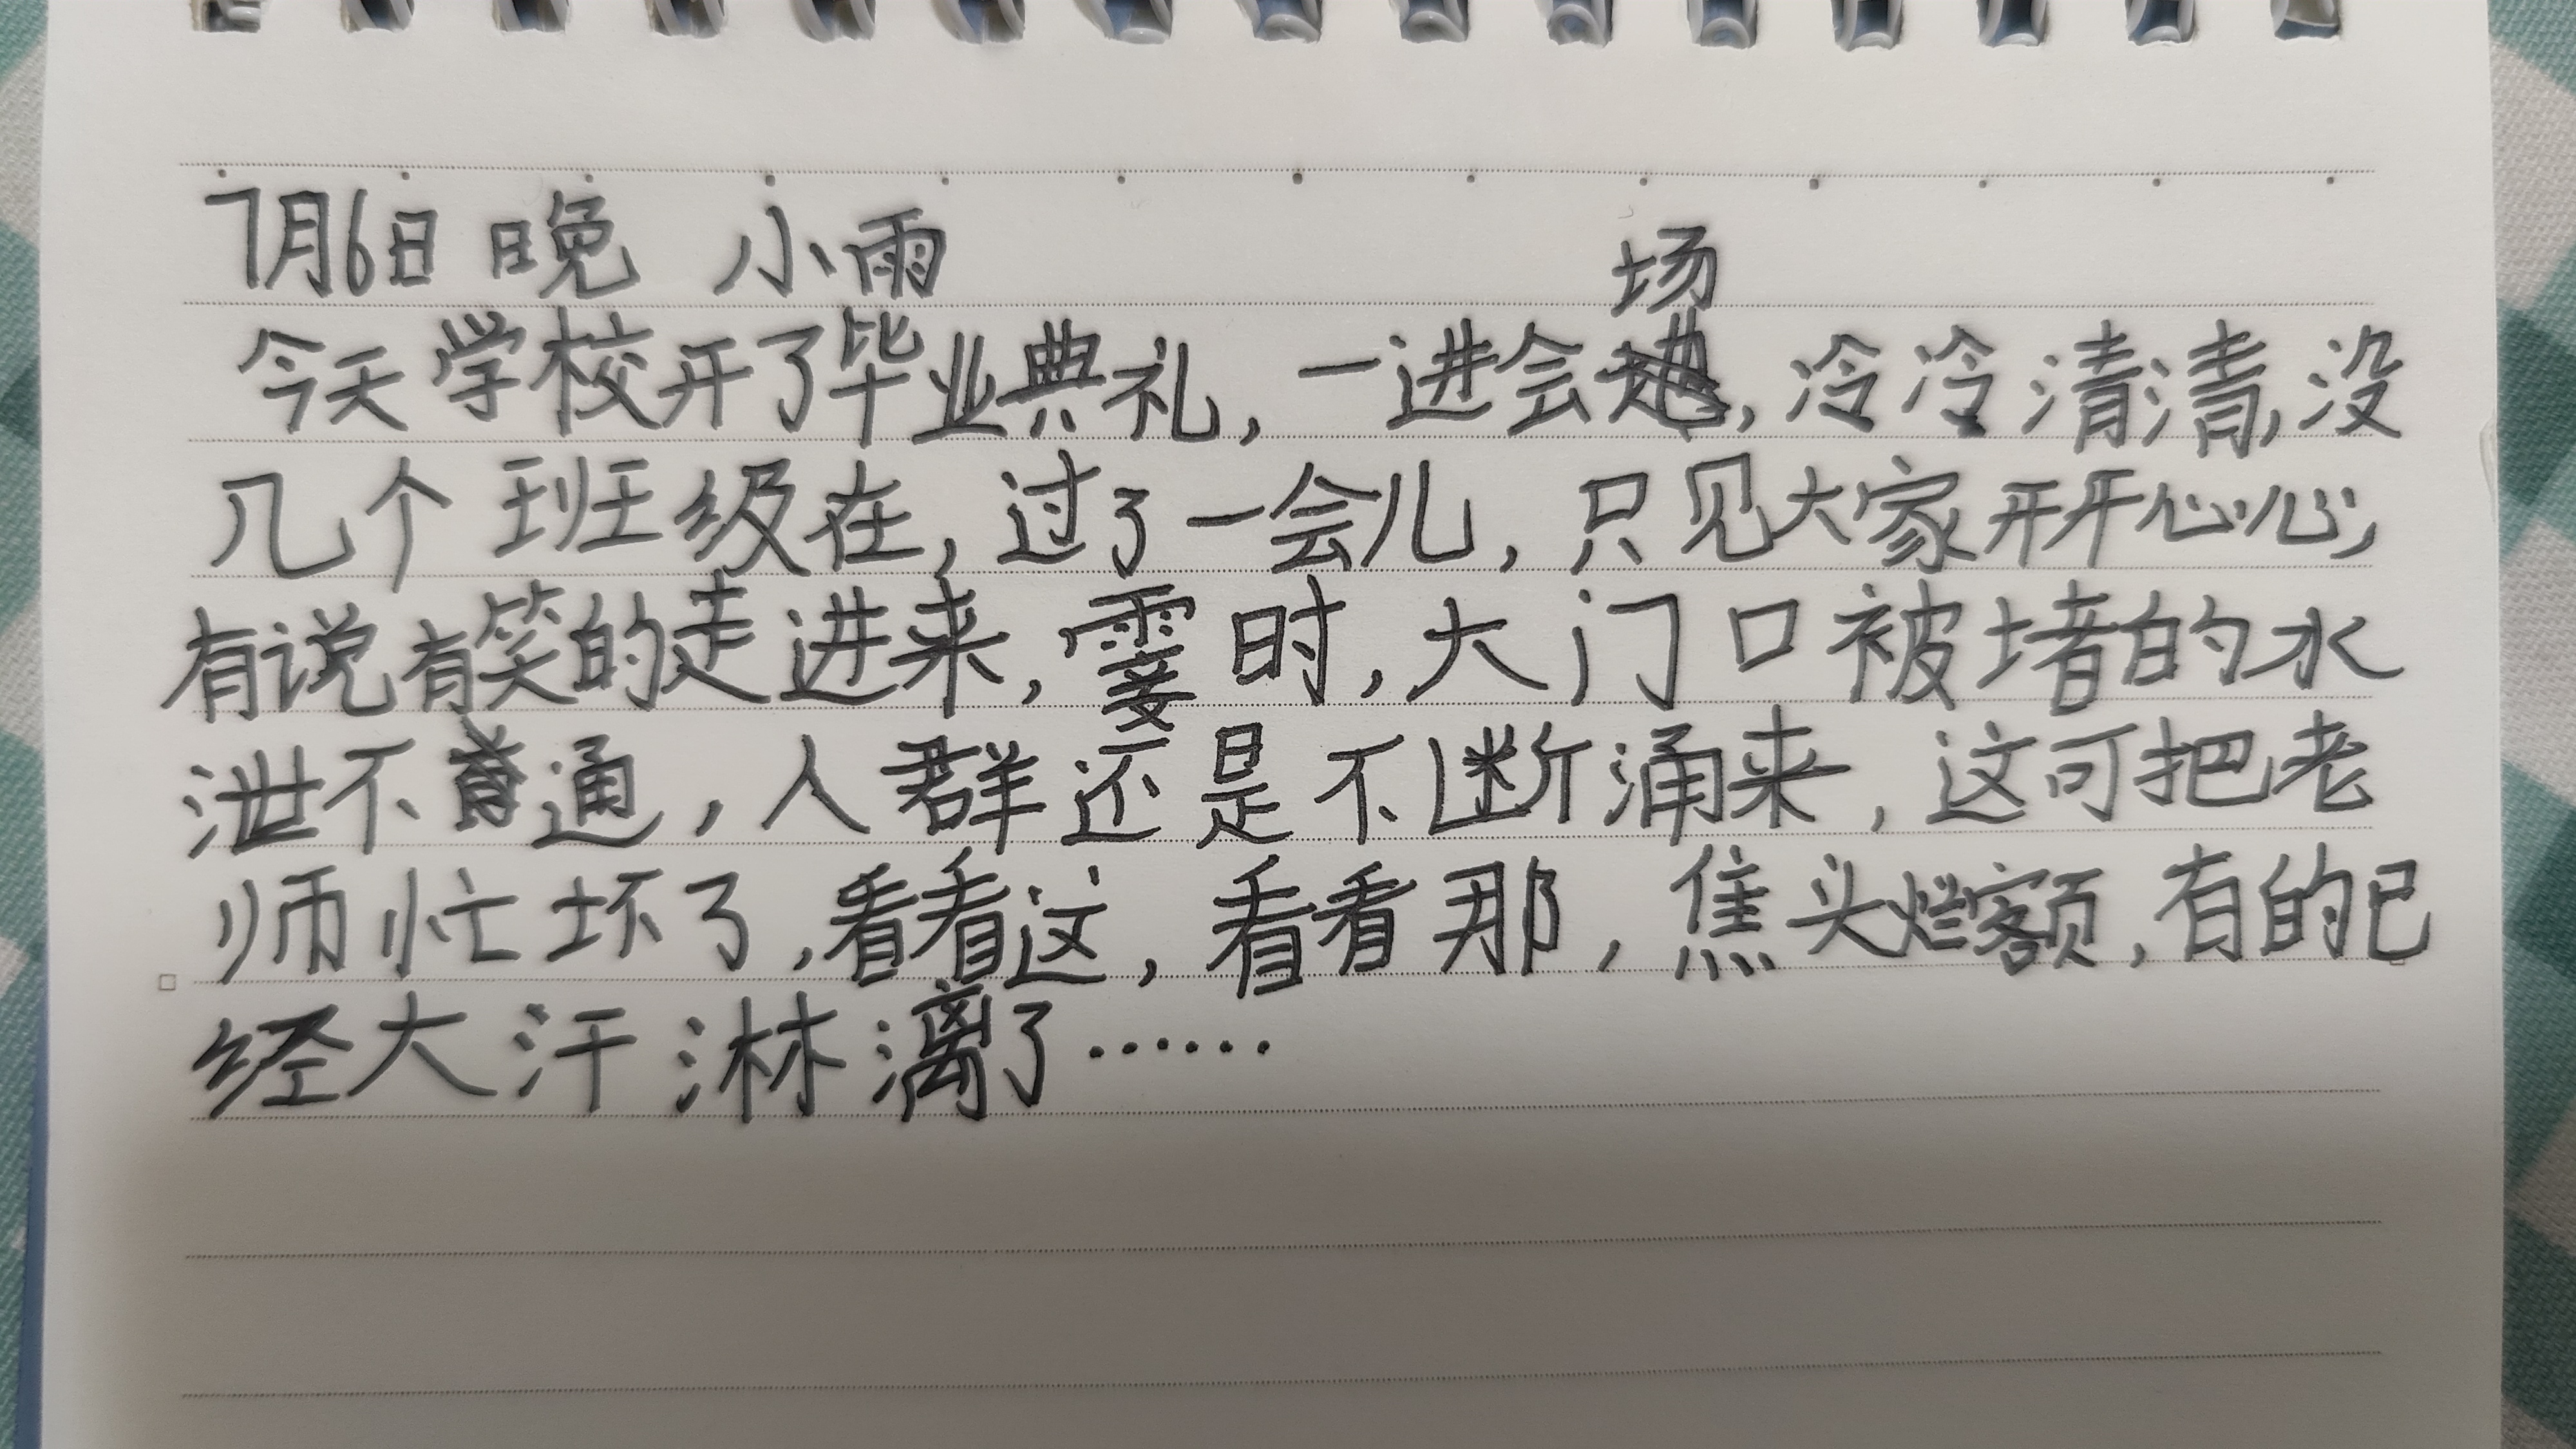 7月6日 晚 小雨
今天学校开了毕业典礼,一进会场,冷冷清清,没
几个班级在,过了一会儿,只见大家开开心心,
有说有笑的走进来,霎时,大门口被堵的水
泄不通,人群还是不断涌来,这可把老
师忙坏了,看看这,看看那,焦头烂额,有的已
经大汗淋漓了……